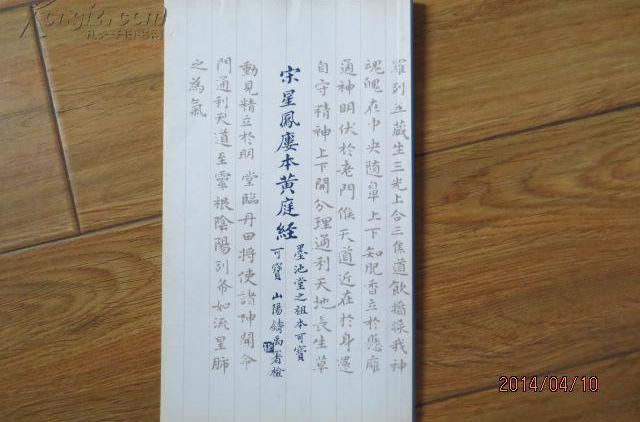 羅列五藏生三光上合三焦道飲醬漿我神
魂魄在中央隨鼻上下知肥香立於懸廱
通神明伏於老門候天道近在於身還
自守精神上下開分理通利天地長生草
宋星鳳廔本黃庭經
墨池堂之祖本可寶
可寶 山陽鑄禹署檢
動見精立於明堂臨丹田將使諸神開命
門通利天道至靈根陰陽列布如流星肺
之為氣
2014/04/10